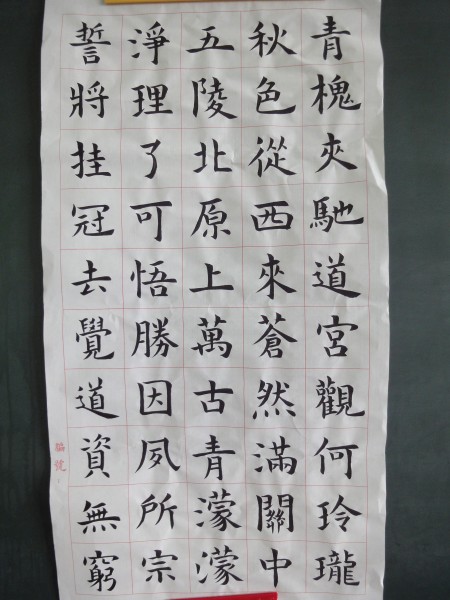 青槐夾馳道宮觀何玲瓏
秋色從西來蒼然滿關中
五陵北原上萬古青濛濛
淨理了可悟勝因夙所宗
誓將挂冠去覺道資無窮